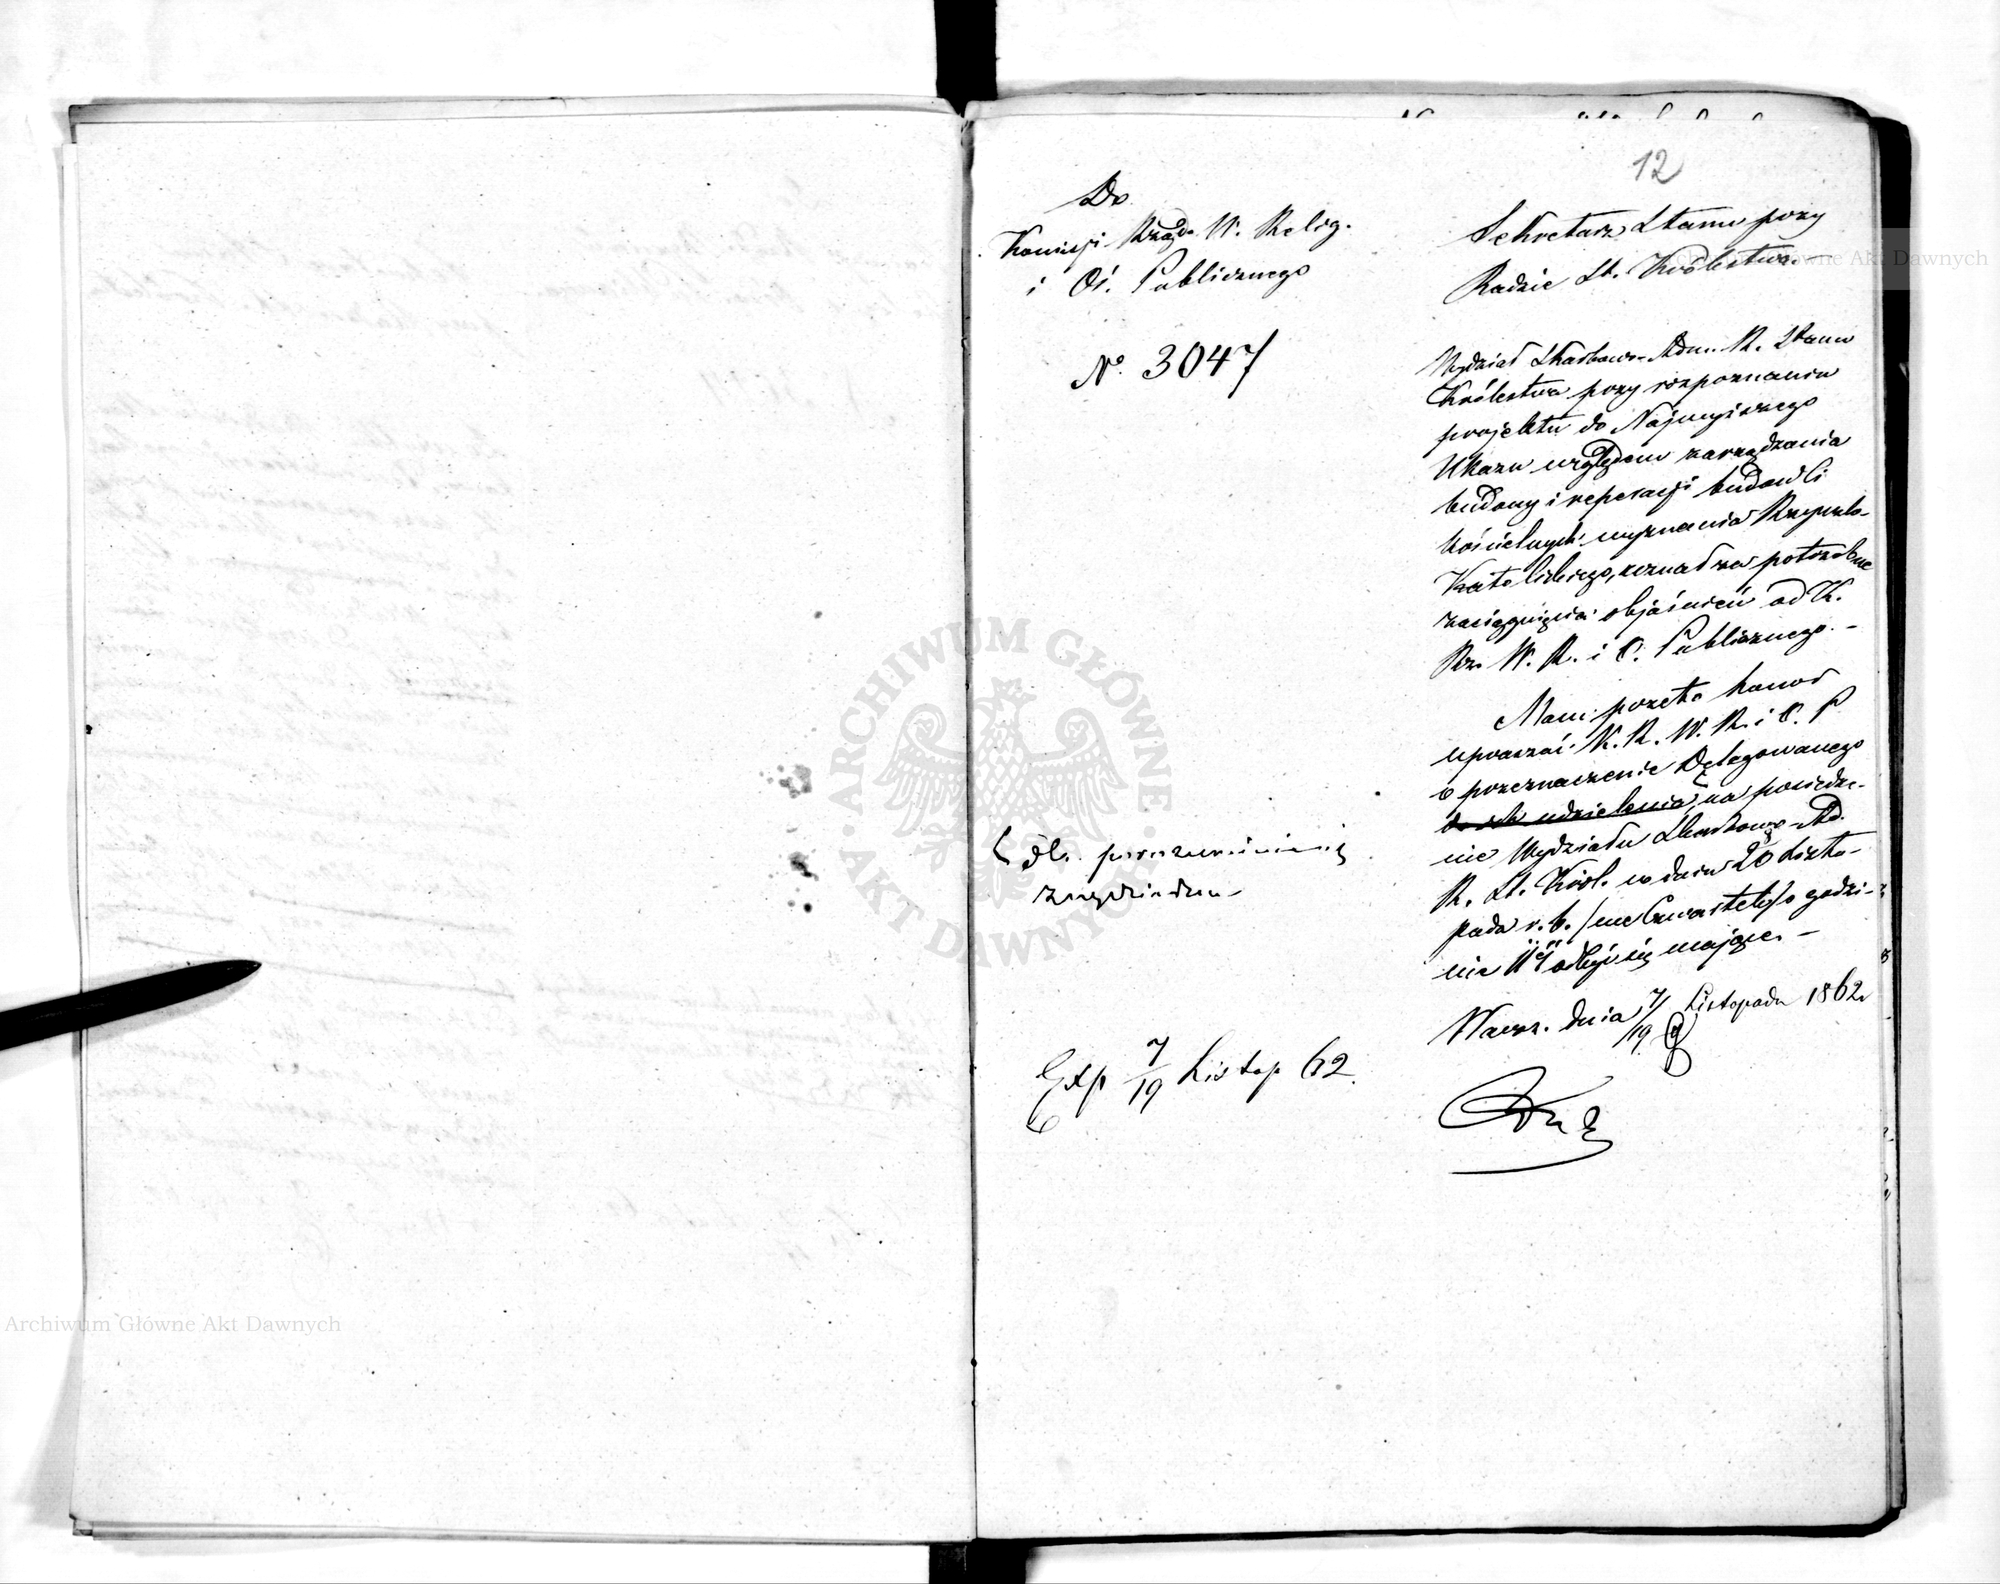 12
Do
Komisji Rządo. W. Relig.
i Oś. Publicznego
N° 3047
Sekretarz Stanu przy
Radzie St. Królestwa. —
Wydział Skarbowo-Adm. R. Stanu
Królestwa przy rozpoznaniu
projektu do Najwyższego
Ukazu względem zarządzania
budowy i reperacji budowli
kościelnych wyznania Rzymsko-
Katolickiego, uznał za potrzebne
zaciągnięcie objaśnień od K.
Rz. W. R. i O. Publicznego. —
Mam przeto honor
upraszać K. R. W. R. i O. P
o przeznaczenie Delegowanego
do ich udzielenia na posiedze-
nie Wydziału Skarbowo-Ad.
R. St. Król. w dniu 20 Listo-
pada r. b. /we Czwartek/ o godzi-
nie 11ej odbyć się mające. —
Warsz. dnia 7/19 Listopada 1862
dla porozumienia się
Exp 7/19 Listop 62.
Archiwum Główne Akt Dawnych
ARCHIWUM GŁÓWNE
AKT DAWNYCH
Archiwum Główne Akt Dawnych